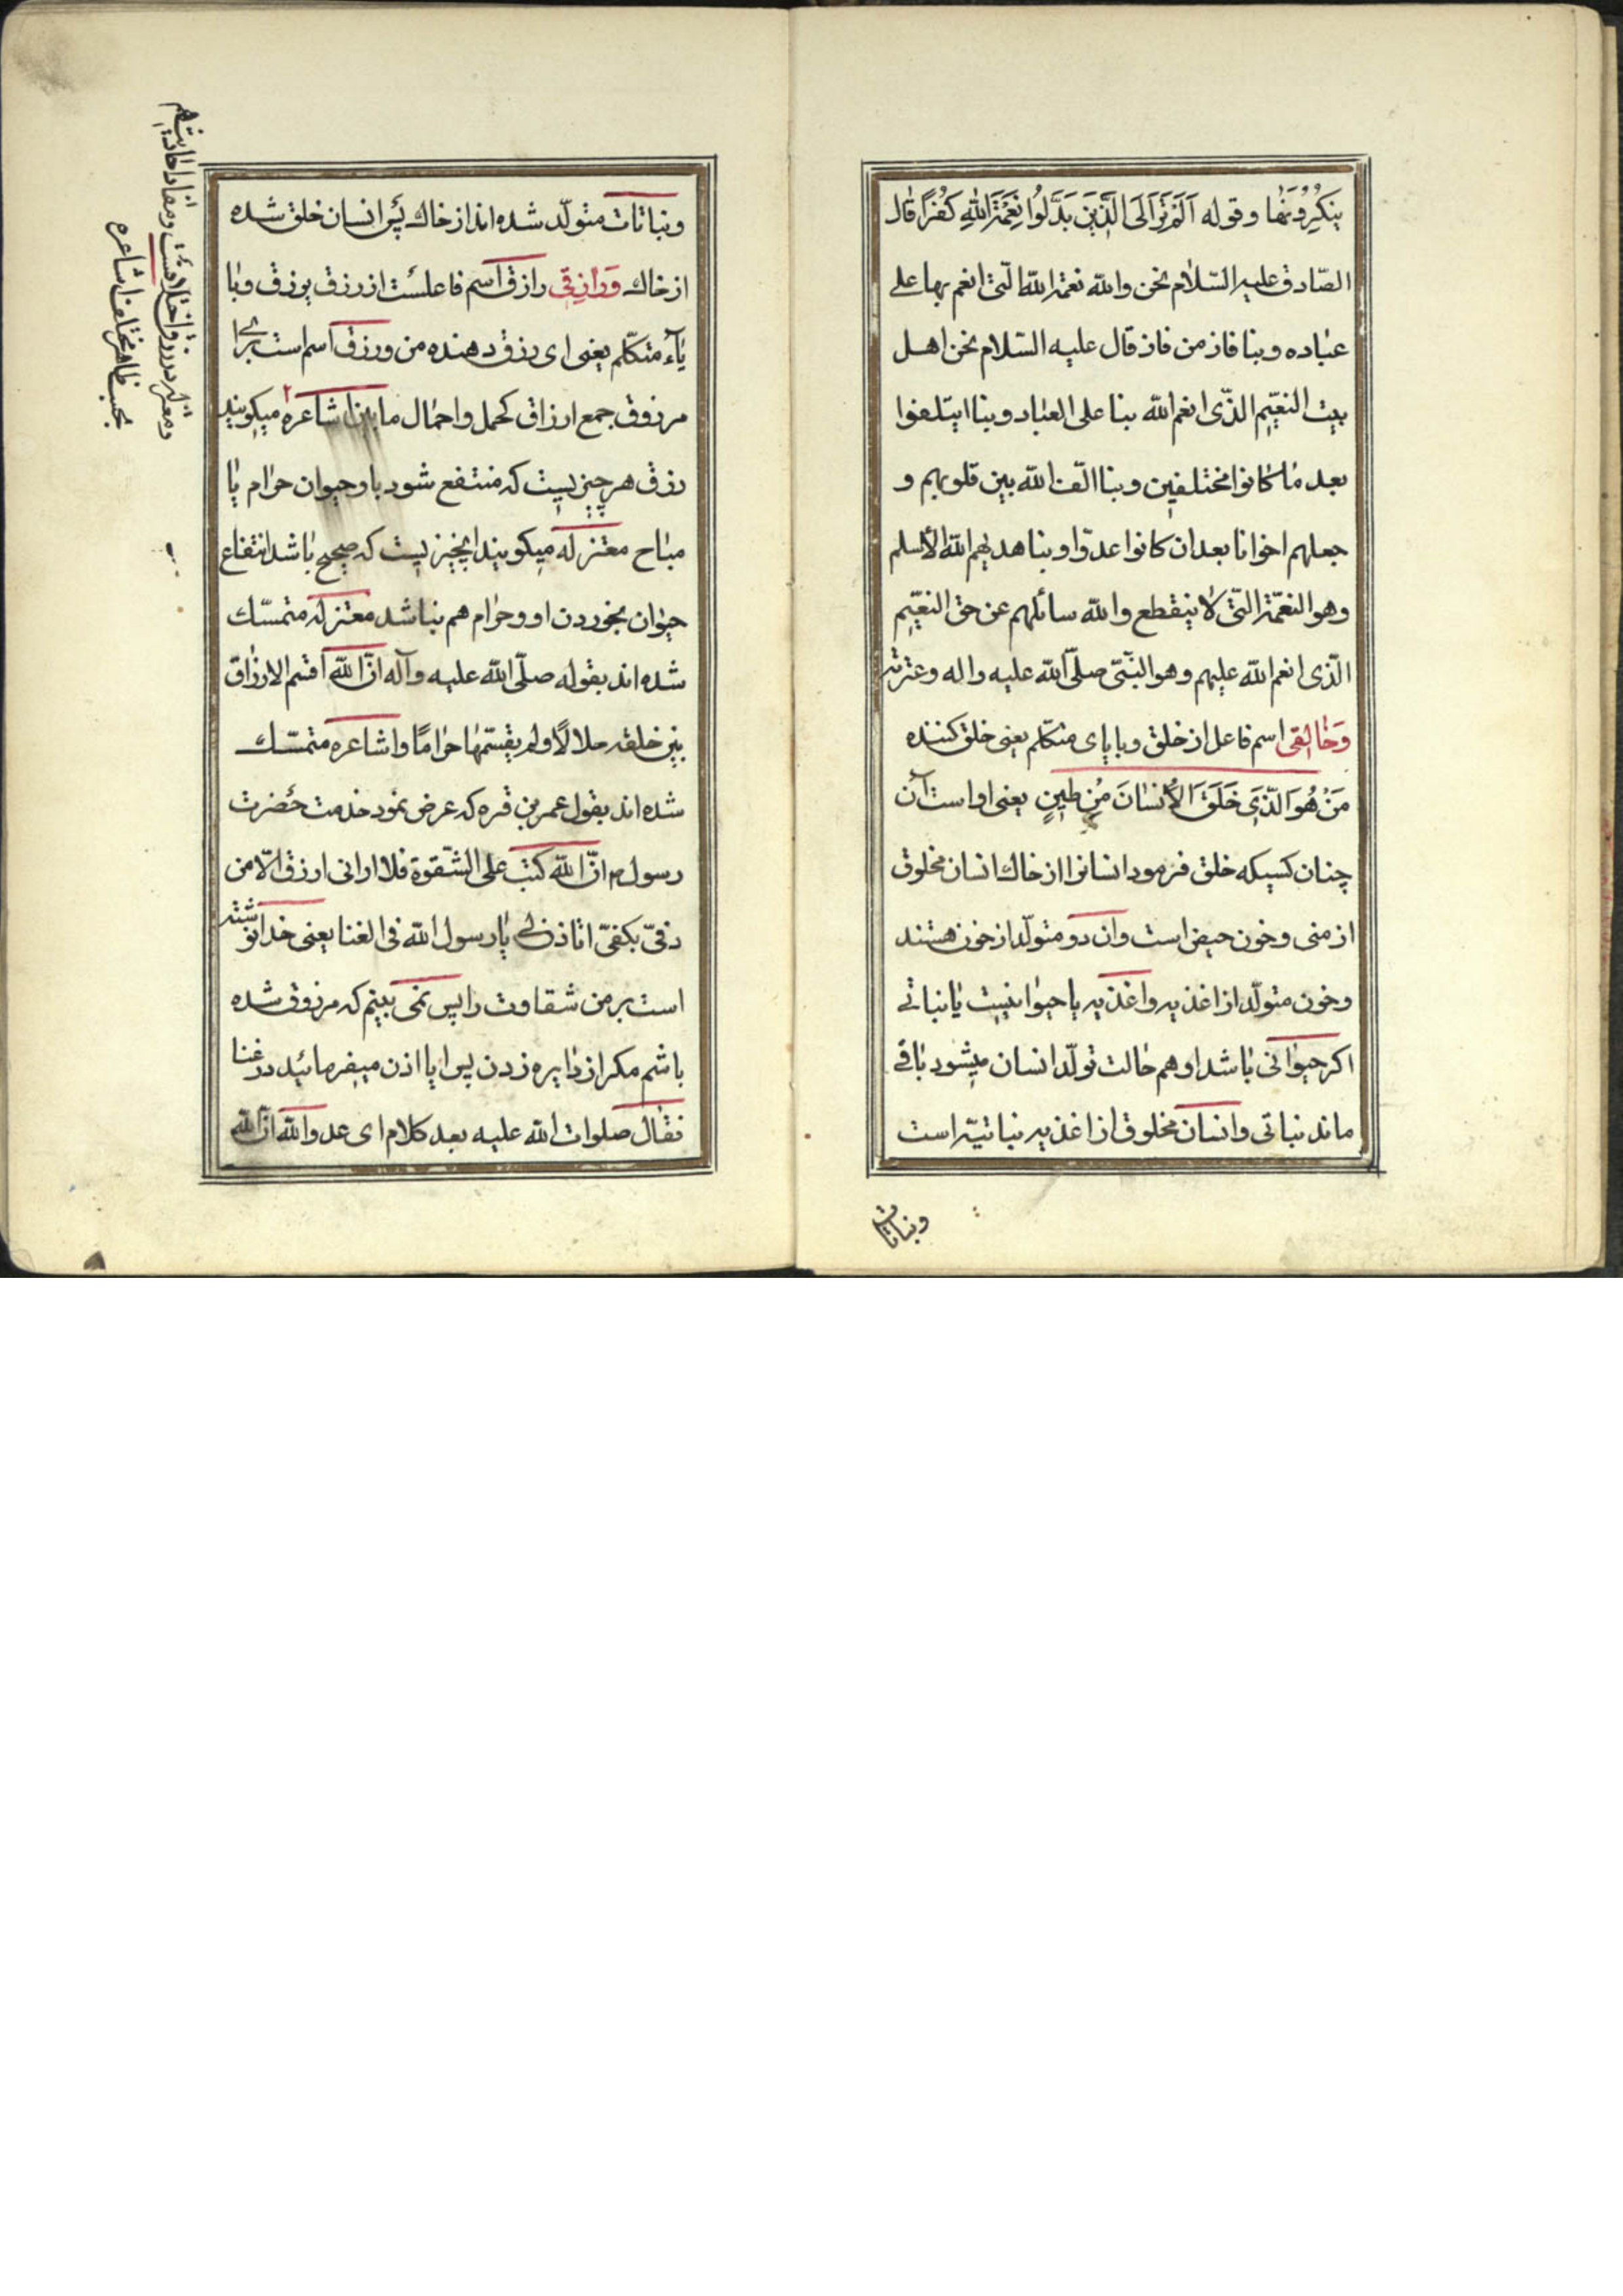 ینکرونها و قوله اَلَمْ تَرَ اِلَی الَّذِینَ بَدَّلُوا نِعْمَةَ اللهِ کُفْرًا قال
الصّادق علیه السّلام نحن والله نعمة الله الّتی انعم بها علی
عباده و بنا فاز من فاز قال علیه السّلام نحن اهل
بیت النعیم الذّی انعم الله بنا علی العباد و بنا ایتلفوا
بعد ما کانوا مختلفین و بنا الّف الله بین قلوبهم و
جعلهم اخوانا بعد ان کانوا عدوّا و بنا هدیهم الله الأسلم
وهو النعمّة التّی لا ینقطع والله سائلهم عن حق النعیّم
الّذی انعم الله علیهم و هو النّبی صلّی الله علیه و اله و عترته
وَخٰالِقی اسم فاعل از خلق و با یای متکلّم یعنی خلق کننده
مَنْ هُوَ الذّی خَلَقَ الاُنسٰانَ مُن طینٍ یعنی او است آن
چنان کسیکه خلق فرمود انسانرا از خاك انسان مخلوق
از منی و خون حیض است وان دو متولّد از خون هستند
و خون متولّد از اغذیه و اغذیه یا حیوانیست یا نباتی
اکر حیوانی باشد او هم حالت تولّد انسان میشود باقی
ماند نباتی و انسان مخلوق از اغذیه نباتیّه است
و نباتات
و نباتات متولّد شده اند از خاك پس انسان خلق شده
از خاك وَرازِقی رازق اسم فاعلست از رزق یرزق و با
یآء متکلّم یعنی ای رزق دهنده من و رزق اسم است برای
مرزوق جمع ارزاق کحمل و احمال ما بین اشاعره ۲ میکویند
رزق هر چیزیست که منتفع شود باو حیوان حرام یا
مباح معتزله میکویند انچیزیست که صحیح باشد انتفاع
حیوان بخوردن او و حرام هم نباشد معتزله متمسّك
شده اند بقوله صلّی الله علیه وآله انّ الله اقتم الارزاق
بین خلقه حلالاً ولم یقسمّها حراماً و اشاعره متمسّك
شده اند بقول عمر بن قره که عرض نمود خدمت حضرت
رسول م انّ الله کتب علی الشّقوة فلا ارانی ارزق الّا من
دفیّ بکفیّ اتاذن لی یا رسول الله فی الغنا یعنی خدا نوشته
است بر من شقاوت را پس نمی بینم که مرزوق شده
باشم مکر از دایره زدن پس ایا اذن میفرمائید در غنا
فقال صلوات الله علیه بعد کلام ای عدو الله انّ الله
و معتزله در رزق اختلافست و مفاد احادیث هم
بحسب ظاهر مختلف اشاعره